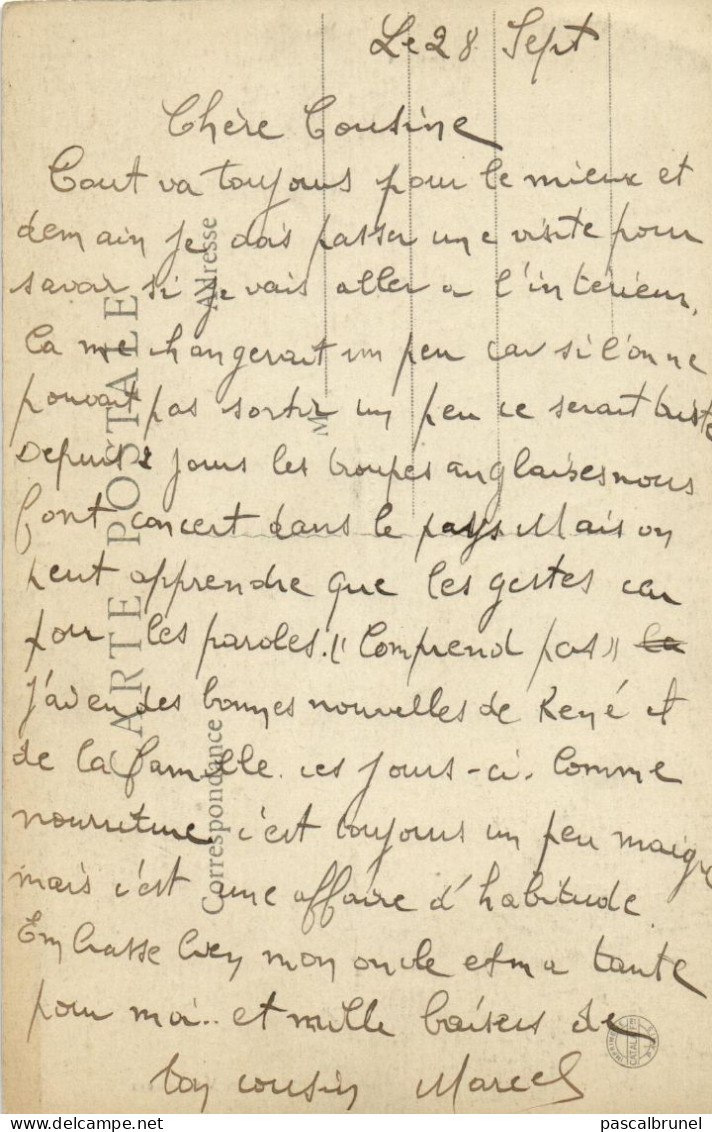 Le 28 Sept
Chère Cousine
Tout va toujours pour le mieux et
demain je dois passer une visite pour
savoir si je vais aller a l'intérieur,
Ca me changerait un peu car si l'on ne
pouvait pas sortir un peu ce serait triste
Depuis 2 jours les troupes anglaises nous
font concert dans le pays Mais on
peut apprendre que les gestes car
pour les paroles. "Comprend pas"
J'ai eu des bonnes nouvelles de René et
de la famille ces jours-ci. Comme
nourriture c'est toujours un peu maigre
mais c'est une affaire d'habitude.
Embrasse bien mon oncle et ma tante
pour moi.. et mille baisers de
ton cousin Marcel
CARTE POSTALE
Correspondance
Adresse
M
pascalbrunel